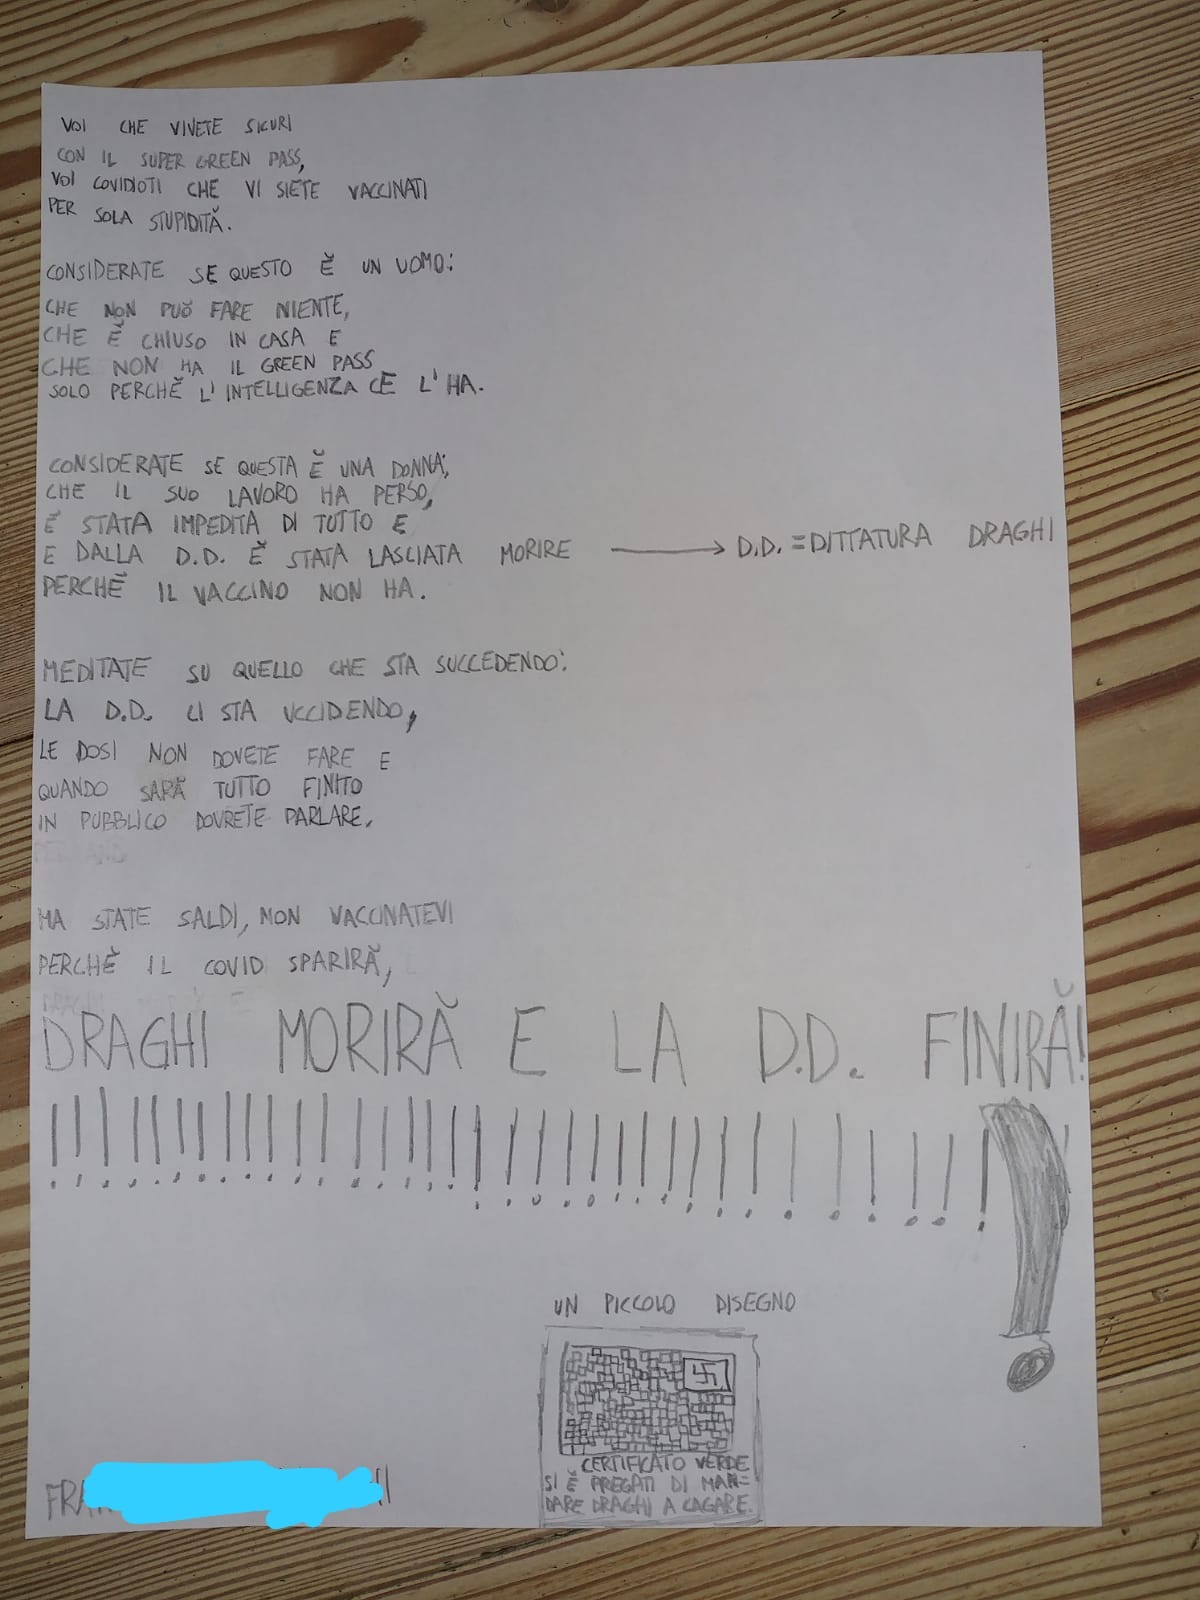 VOI CHE VIVETE SICURI
CON IL SUPER GREEN PASS,
VOI COVIDIOTI CHE VI SIETE VACCINATI
PER SOLA STUPIDITÀ.
CONSIDERATE SE QUESTO È UN UOMO:
CHE NON PUÒ FARE NIENTE,
CHE È CHIUSO IN CASA E
CHE NON HA IL GREEN PASS
SOLO PERCHÈ L'INTELLIGENZA CE L'HA.
CONSIDERATE SE QUESTA È UNA DONNA;
CHE IL SUO LAVORO HA PERSO,
È STATA IMPEDITA DI TUTTO E
E DALLA D.D. È STATA LASCIATA MORIRE → D.D. = DITTATURA DRAGHI
PERCHÈ IL VACCINO NON HA.
MEDITATE SU QUELLO CHE STA SUCCEDENDO:
LA D.D. CI STA UCCIDENDO,
LE DOSI NON DOVETE FARE E
QUANDO SARÀ TUTTO FINITO
IN PUBBLICO DOVRETE PARLARE.
MA STATE SALDI, NON VACCINATEVI
PERCHÈ IL COVID SPARIRÀ,
DRAGHI MORIRÀ E LA D.D. FINIRÀ!
!!!!!!!!!!!!!!!!!!!!!!!!!!!!!!!!!!!
UN PICCOLO DISEGNO
CERTIFICATO VERDE
SI È PREGATI DI MAN=
DARE DRAGHI A CAGARE.